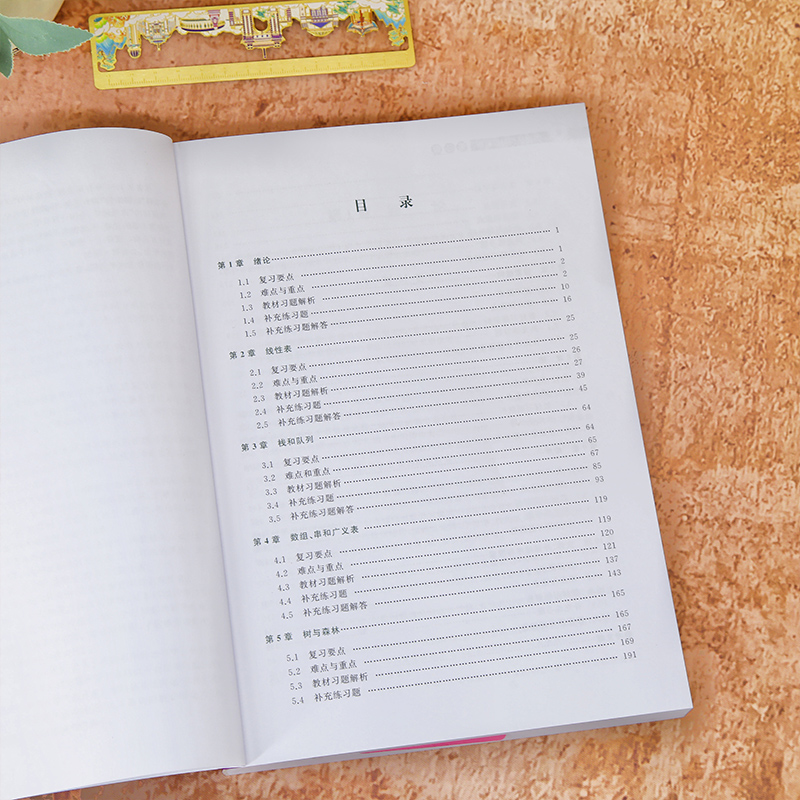 目 录
第1章 绪论 1
1.1 复习要点 1
1.2 难点与重点 2
1.3 教材习题解析 2
1.4 补充练习题 10
1.5 补充练习题解答 16
第2章 线性表 25
2.1 复习要点 25
2.2 难点与重点 26
2.3 教材习题解析 27
2.4 补充练习题 39
2.5 补充练习题解答 45
第3章 栈和队列 64
3.1 复习要点 64
3.2 难点和重点 65
3.3 教材习题解析 67
3.4 补充练习题 85
3.5 补充练习题解答 93
第4章 数组、串和广义表 119
4.1 复习要点 119
4.2 难点与重点 120
4.3 教材习题解析 121
4.4 补充练习题 137
4.5 补充练习题解答 143
第5章 树与森林 165
5.1 复习要点 165
5.2 难点与重点 167
5.3 教材习题解析 169
5.4 补充练习题 191